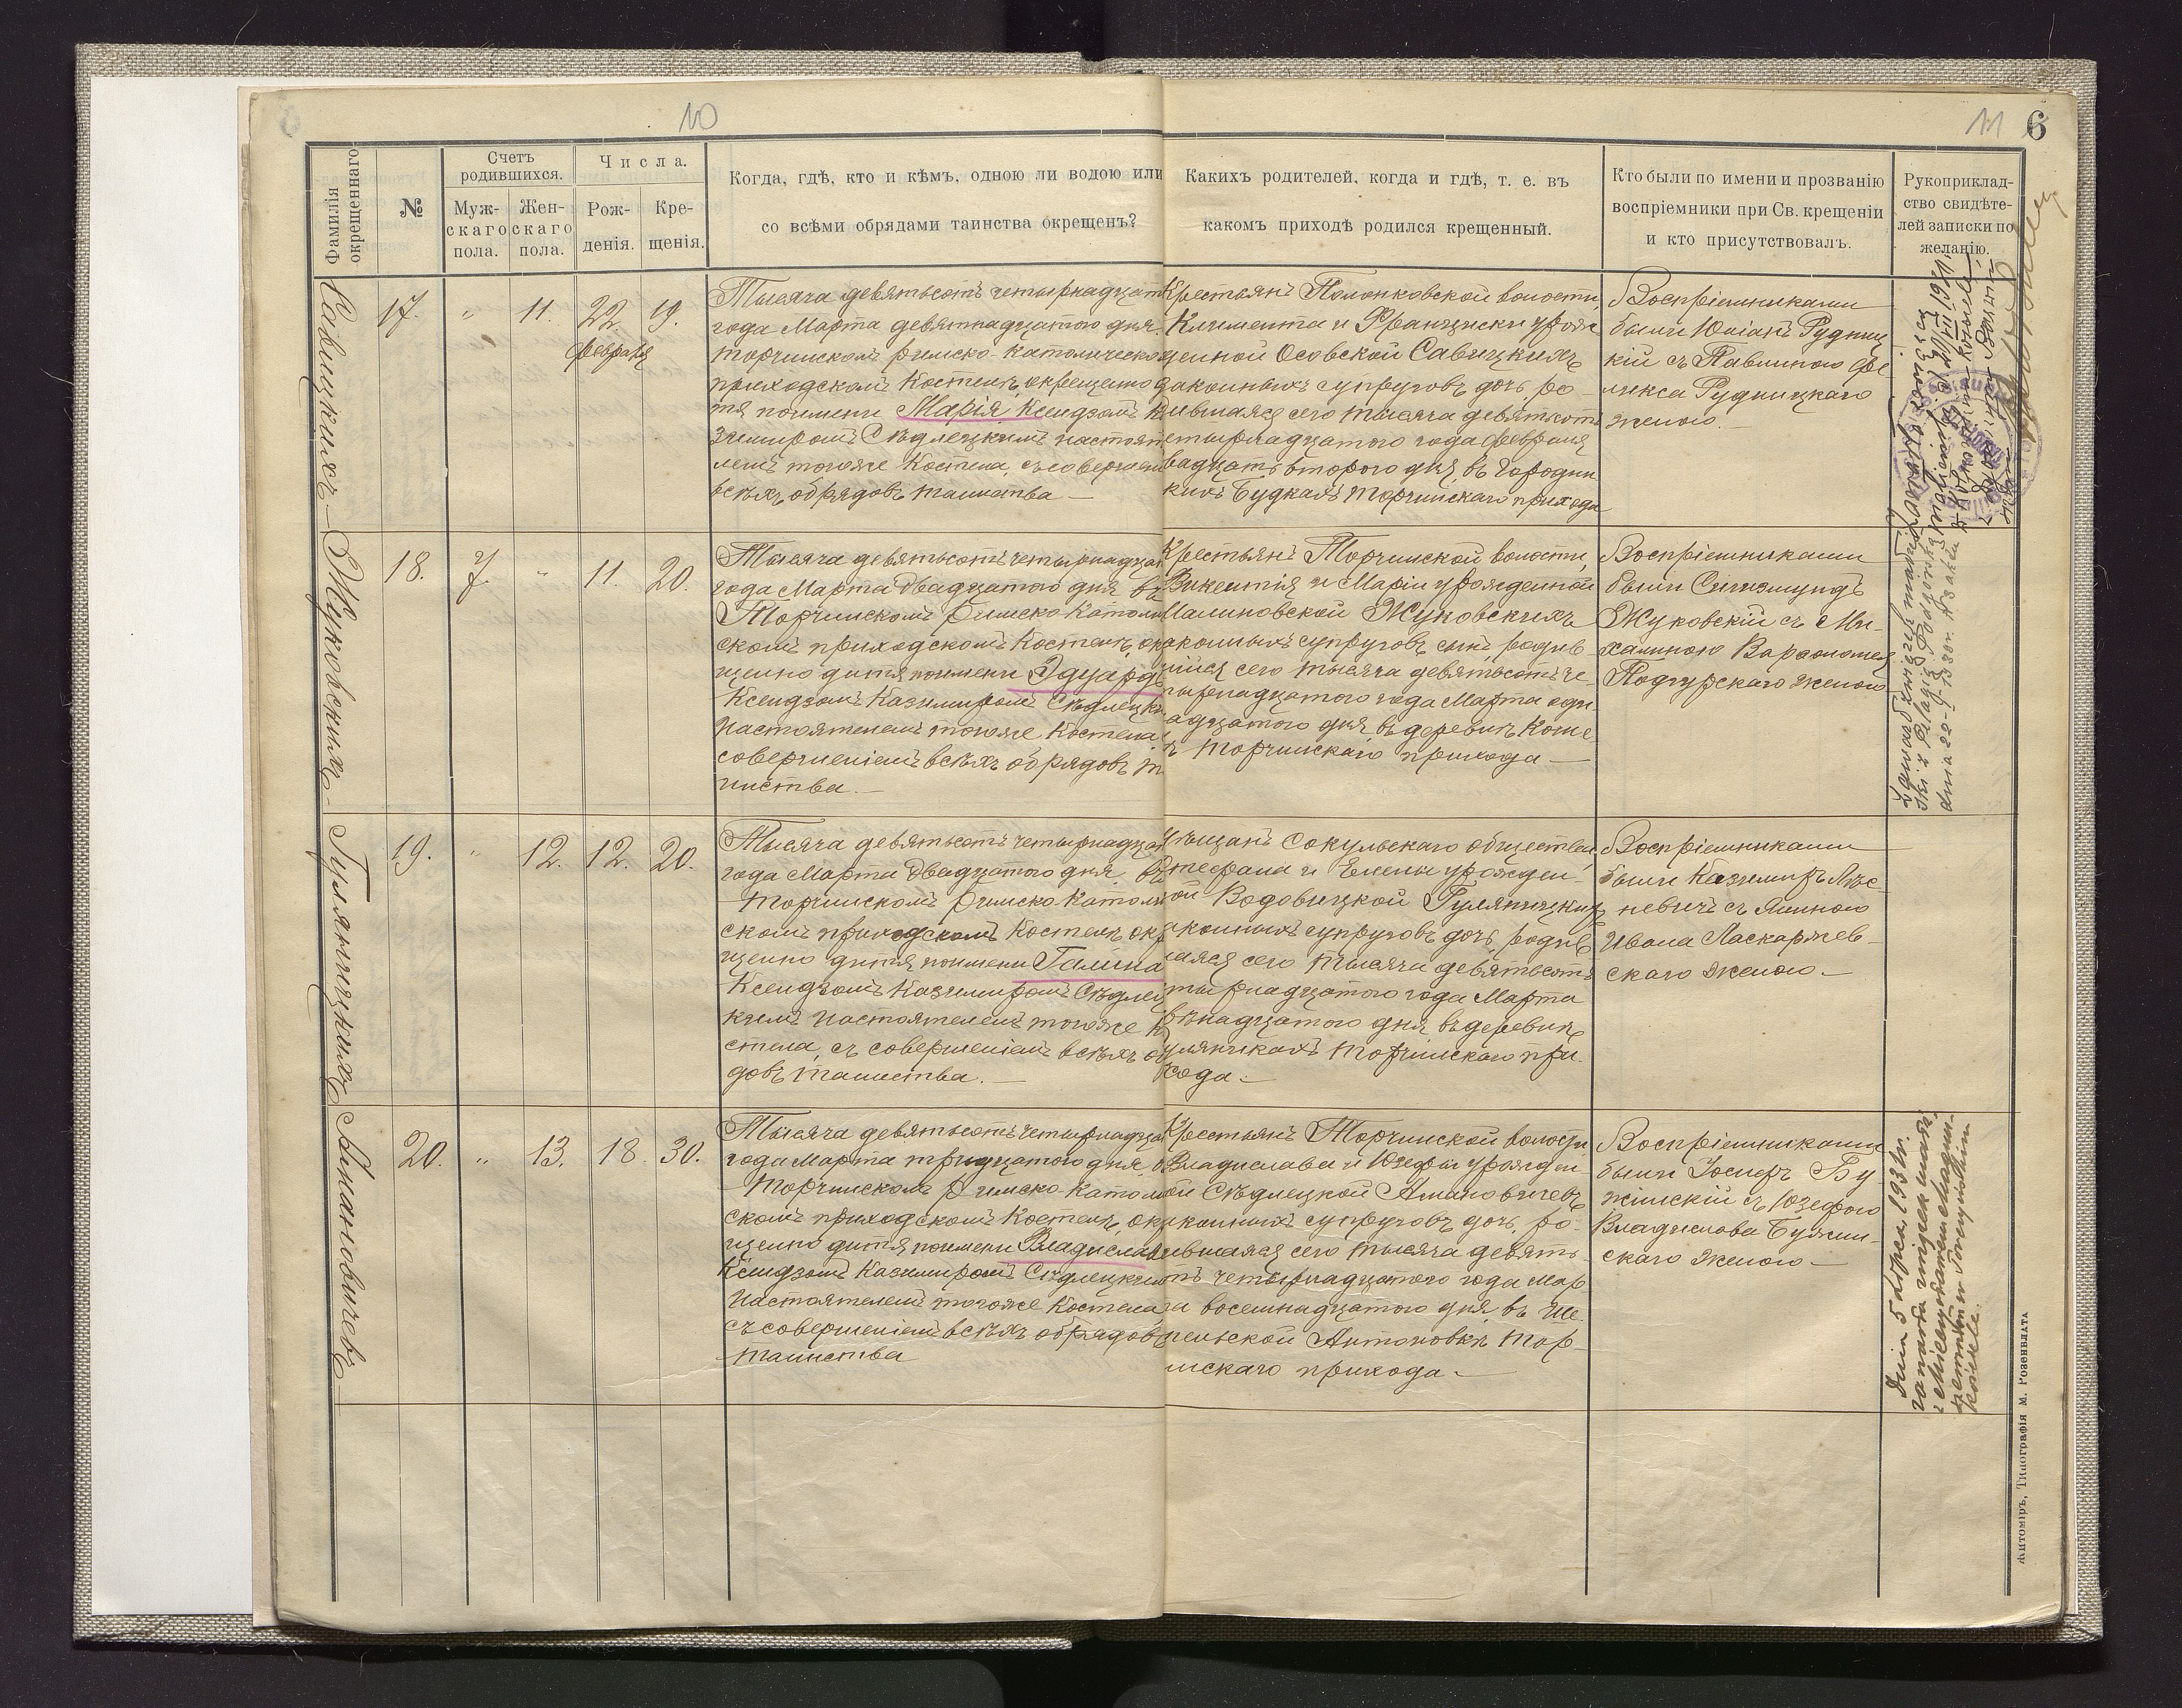 10
11 6
Фамилія окрещеннаго
№
Счетъ родившихся.
Муж-
скаго
пола.
Жен-
скаго
пола.
Числа.
Рож-
денія.
Кре-
щенія.
Когда, гдѣ, кто и кѣмъ, одною ли водою или
со всѣми обрядами таинства окрещенъ?
Какихъ родителей, когда и гдѣ, т. е. въ
какомъ приходѣ родился крещенный.
Кто были по имени и прозванію
воспріемники при Св. крещеніи
и кто присутствовалъ.
Рукоприклад-
ство свидѣте-
лей записки по
желанію.
Савицкихъ
17. " 11. 22 19.
февраля
Тысяча девятьсотъ четырнадцат
года Марта девятнадцатого дня
Торчинскомъ римско-католическо
приходскомъ Костелѣ, окрещено д
тя поимени Марія Ксендзомъ К
зимиромъ Сѣдлецкимъ настоят
лемъ тогоже Костела, съ соверш
всѣхъ обрядовъ таинства —
Крестьянъ Полонковской волости,
Климента и Францишки урож
денной Осовской Савицкихъ
законныхъ супруговъ дочь, ро-
ившаяся сего тысяча девятьсотъ
етырнадцатого года февраля
вадцать второго дня, въ Городни
кихъ Будкахъ Торчинскаго прихода
Воспріемниками
были Юліанъ Рудниц
кій съ Павлиною Фе
ликса Рудницкаго
женою. —
Жуковскихъ
18. 7. " 11. 20.
Тысяча девятьсотъ четырнадцат
года Марта двадцатого дня въ
Торчинскомъ Римско-Католи
скомъ приходскомъ Костелѣ, ок
щено дитя поимени Эдуардъ
Ксендзомъ Казимиромъ Сѣдлецки
Настоятелемъ тогоже Костела,
совершеніемъ всѣхъ обрядовъ т
инства. —
Крестьянъ Торчинской волости,
Викентія и Маріи урожденной
Малиновской Жуковскихъ
аконныхъ супруговъ сынъ, родив-
шійся сего тысяча девятьсотъ че-
тырнадцатого года Марта оди
адцатого дня, въ деревнѣ Коше-
ѣ Торчинскаго прихода —
Воспріемниками
были Сигизмундъ
Жуковскій съ Ми-
халиною Варфоломея
Подгурскаго женою
Гуляницкихъ
19. " 12. 12. 20.
Тысяча девятьсотъ четырнадцат
года Марта двадцатого дня въ
Торчинскомъ Римско-Католи
скомъ приходскомъ Костелѣ окр
щено дитя поимени Галина
Ксендзомъ Казимиромъ Сѣдлец
кимъ Настоятелемъ тогоже К
стела, съ совершеніемъ всѣхъ об
довъ таинства. —
ѣщанъ Сокульскаго общества,
тефана и Елены урожден-
ой Водовицкой Гуляницких
аконныхъ супруговъ дочь, родив
шаяся сего тысяча девятьсотъ
тырнадцатого года Марта
вѣнадцатого дня, въ деревнѣ
уляникахъ Торчинскаго при-
хода. —
Воспріемниками
были Казимиръ Яс-
невичъ съ Яниною
Ивана Ласкаржев-
скаго женою. —
Амановичевъ
20. " 13. 18. 30.
Тысяча девятьсотъ четырнадцат
года Марта тридцатого дня, в
Торчинскомъ Римско-Католи
скомъ приходскомъ Костелѣ, окр
щено дитя поимени Владислав
Ксендзомъ Казимиромъ Сѣдлецким
Настоятелемъ тогоже Костела,
съ совершеніемъ всѣхъ обрядовъ
таинства
Крестьянъ Торчинской волости
Владислава и Юзефы урожден-
ой Сѣдлецкой Амановичевъ
аконныхъ супруговъ дочь, ро-
ившаяся сего тысяча девять-
отъ четырнадцатого года Мар
а восемнадцатого дня, въ Ше-
пельской Антоновкѣ Тор-
инскаго прихода. —
Воспріемниками
были Іосифъ Бу-
жинскій съ Юзефою
Владислава Бужин-
скаго женою —
Dnia 5 lipca 1931 r.
zawarła związek małż.
kościele.
Житоміръ, Типографія М. Розенблата